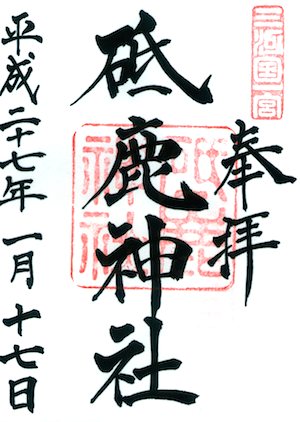 三河國一宮
奉拝
砥鹿神社
砥鹿神社
平成二十七年一月十七日